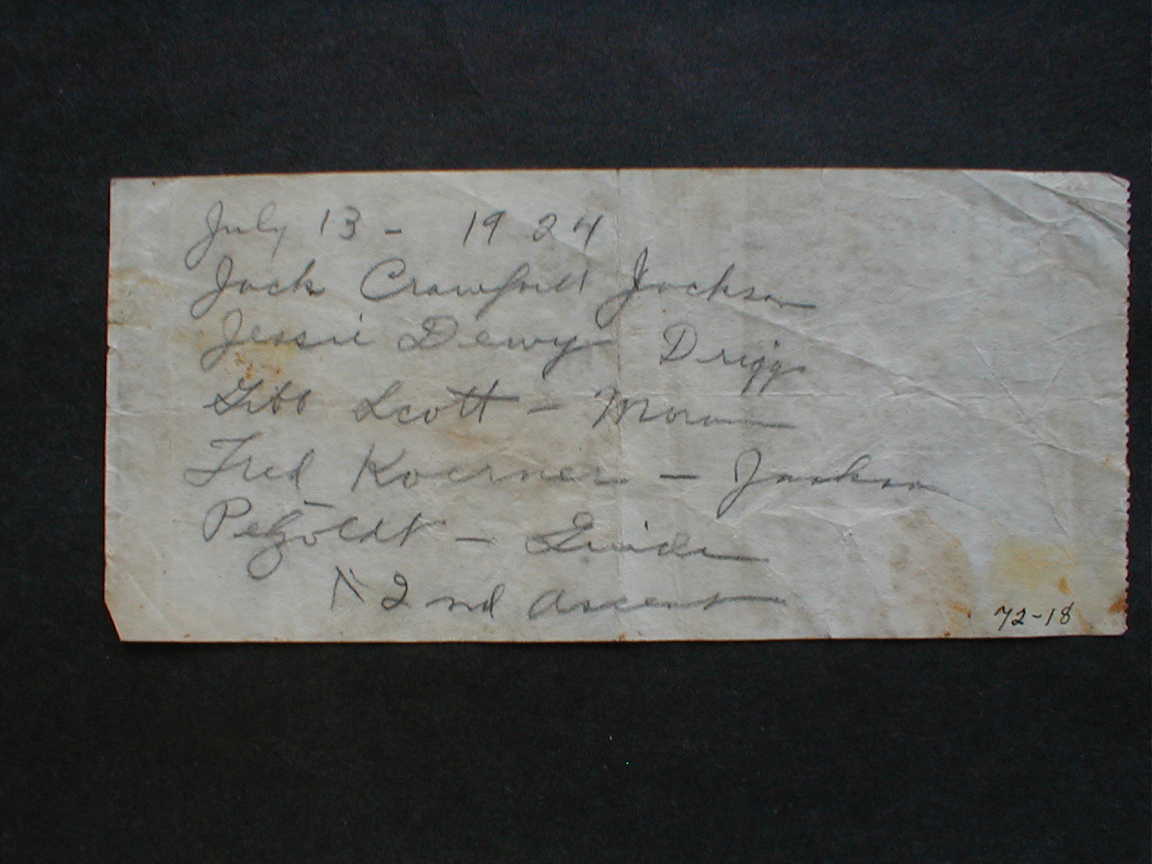 July 13 - 19 24
Jack Crawford Jackson
Jessie Dewy Driggs
Gibb Scott - Moran
Fred Koerner - Jackson
Petzoldt - Guide
2nd ascent
72-18